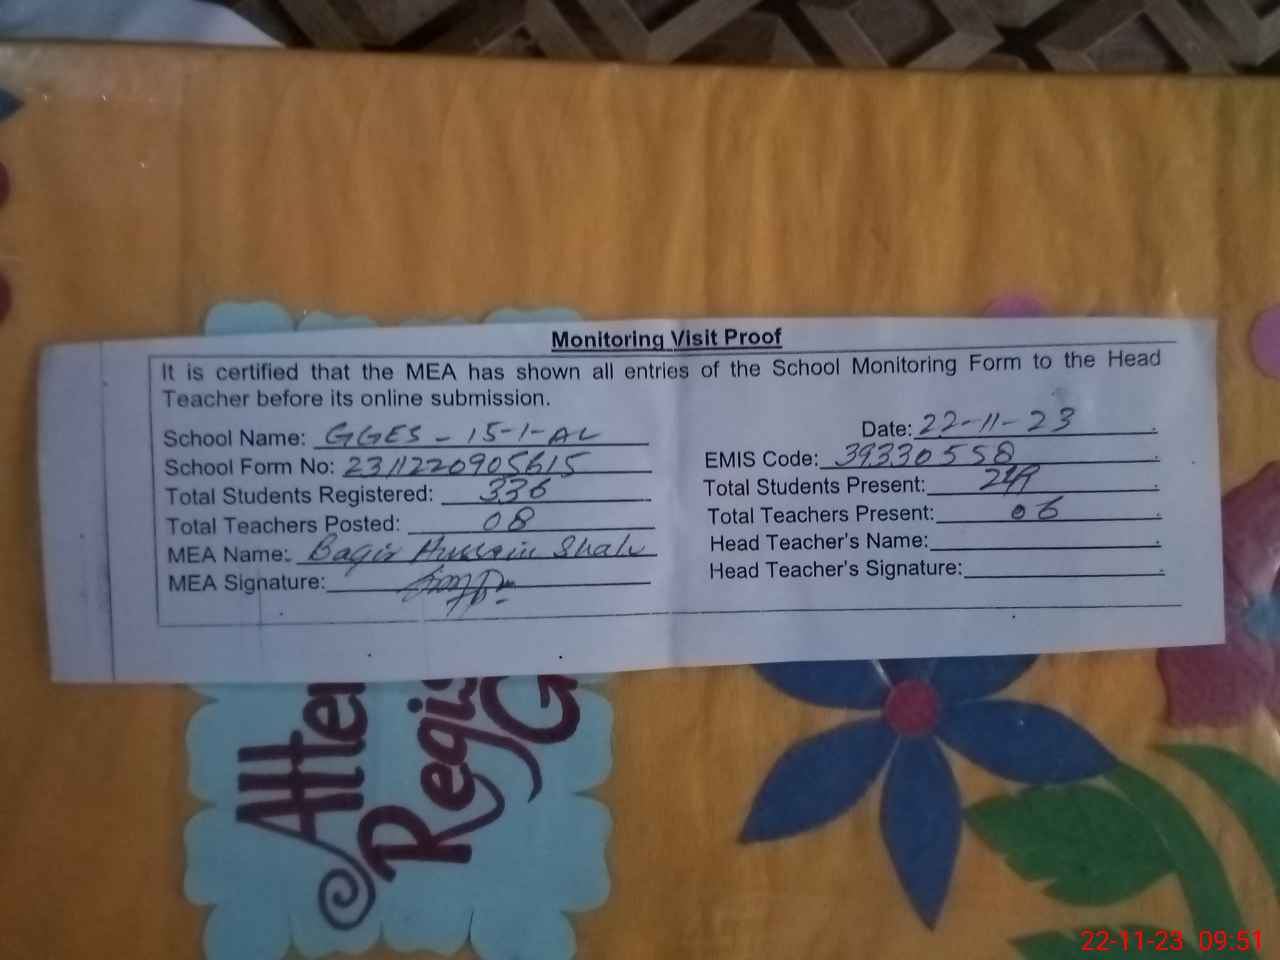 Monitoring Visit Proof
It is certified that the MEA has shown all entries of the School Monitoring Form to the Head
Teacher before its online submission.
School Name: GGES - 15-1-AL
Date: 22-11-23
School Form No: 2311220905615
EMIS Code: 39330558
Total Students Registered: 336
Total Students Present: 249
Total Teachers Posted: 08
Total Teachers Present: 06
MEA Name: Baqir Hussain Shah
Head Teacher's Name:
MEA Signature:
Head Teacher's Signature:
Atten
Regis
G
22-11-23 09:51